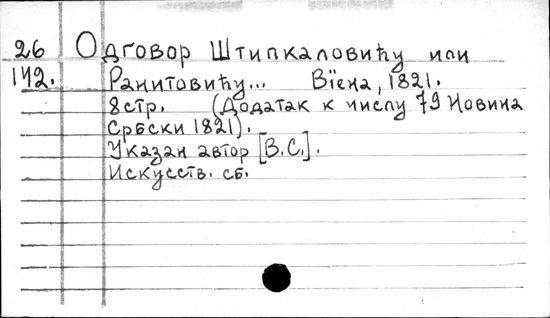 26 Одговор Штипкаловићу или
142. Ранитовићу... Вїена, 1821.
8 стр. (Додатак к числу 79 Новина
Србски 1821).
Указан автор [В.С.].
Искусств. сб.